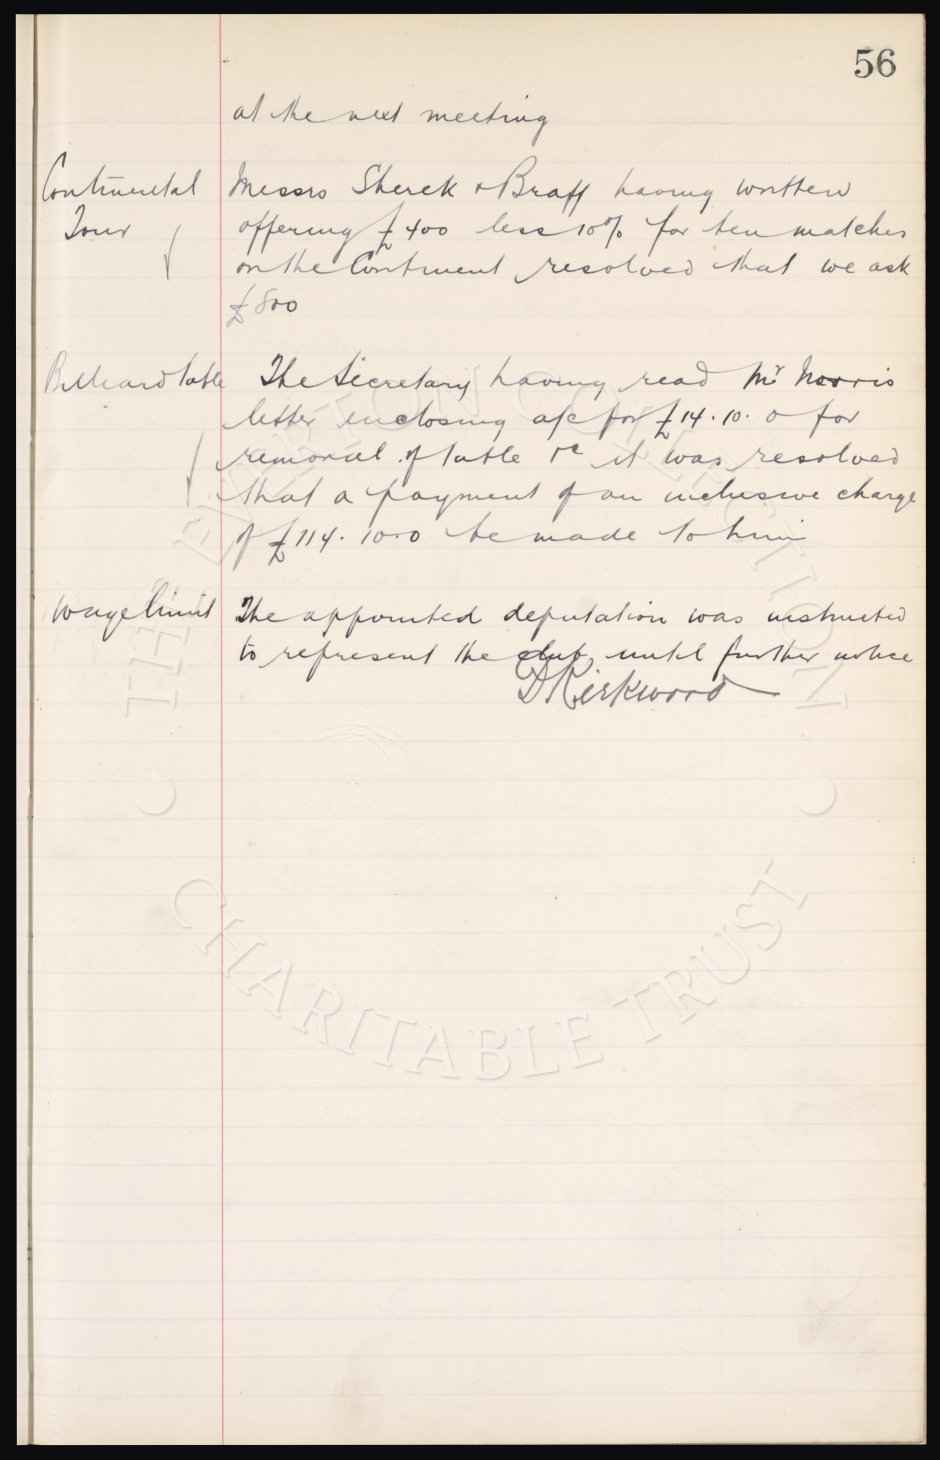 56
at the next meeting
Continental
Tour
Messrs Sherek & Braff having written
offering £400 less 10% for ten matches
on the Continent resolved that we ask
£800
Billiard table
The Secretary having read Mr Norris
letter enclosing a/c for £14.10.0 for
removal of table &c it was resolved
that a payment of an inclusive charge
of £114.10.0 be made to him
Wage limit
The appointed deputation was instructed
to represent the club, until further notice
D Kirkwood
THE EVERTON COLLECTION
CHARITABLE TRUST